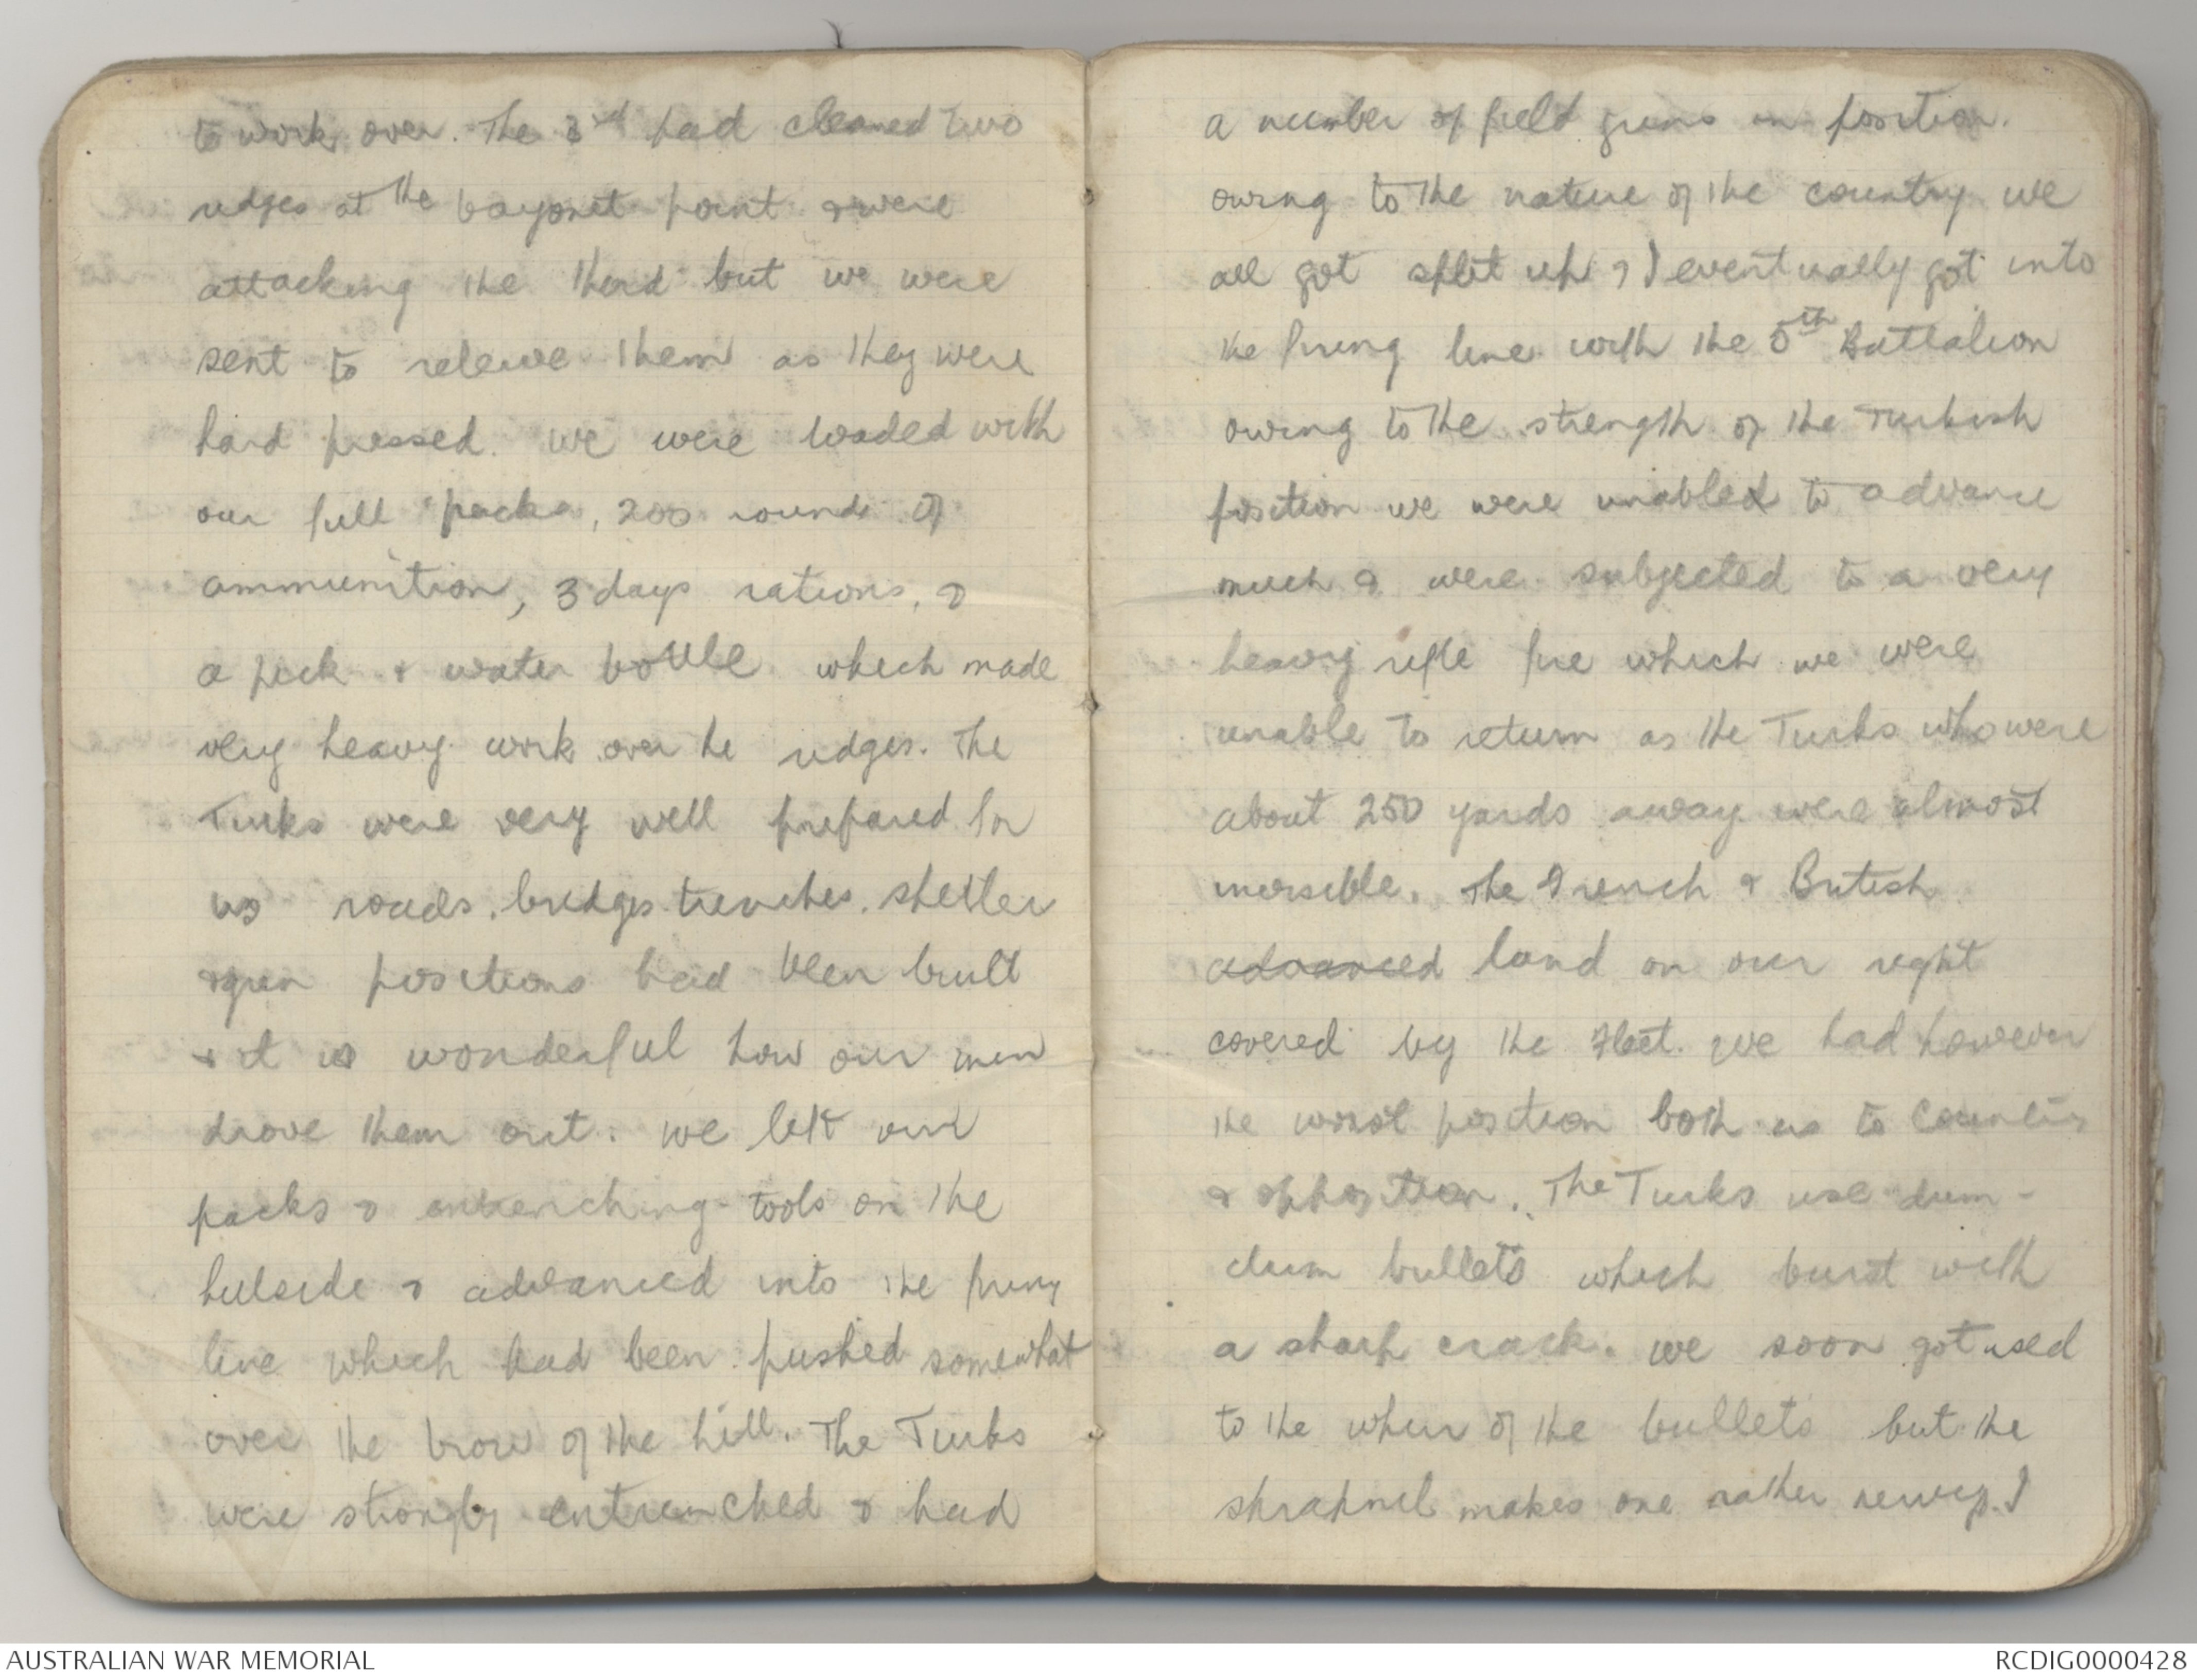 to work over. The 3rd had cleared two
ridges at the bayonet point & were
attacking the third but we were
sent to releive them as they were
hard pressed. we were loaded with
our full packs, 200 rounds of
ammunition, 3 days rations, &
a pick & water bottle which made
very heavy work over he ridges. The
Turks were very well prepared for
us roads, bridges trenches, shelter
& gun positions had been built
& it is wonderful how our men
drove them out. We left our
packs & entrenching tools on the
hillside & advanced into the firing
line which had been pushed somewhat
over the brow of the hill. The Turks
were strongly entrenched & had
a number of field guns in position.
owing to the nature of the country we
all got split up & I eventually got into
the firing line with the 5th Battalion
owing to the strength of the Turkish
position we were unabled to advance
much & were subjected to a very
heavy rifle fire which we were
unable to return as the Turks who were
about 250 yards away were almost
invisible. The French & British
advanced land on our right
covered by the Fleet. We had however
the worst position both as to country
& opposition. The Turks use dum-
dum bullets which burst with
a sharp crack. We soon got used
to the whirr of the bullets but the
shrapnel makes one rather nervy. I
AUSTRALIAN WAR MEMORIAL
RCDIG0000428